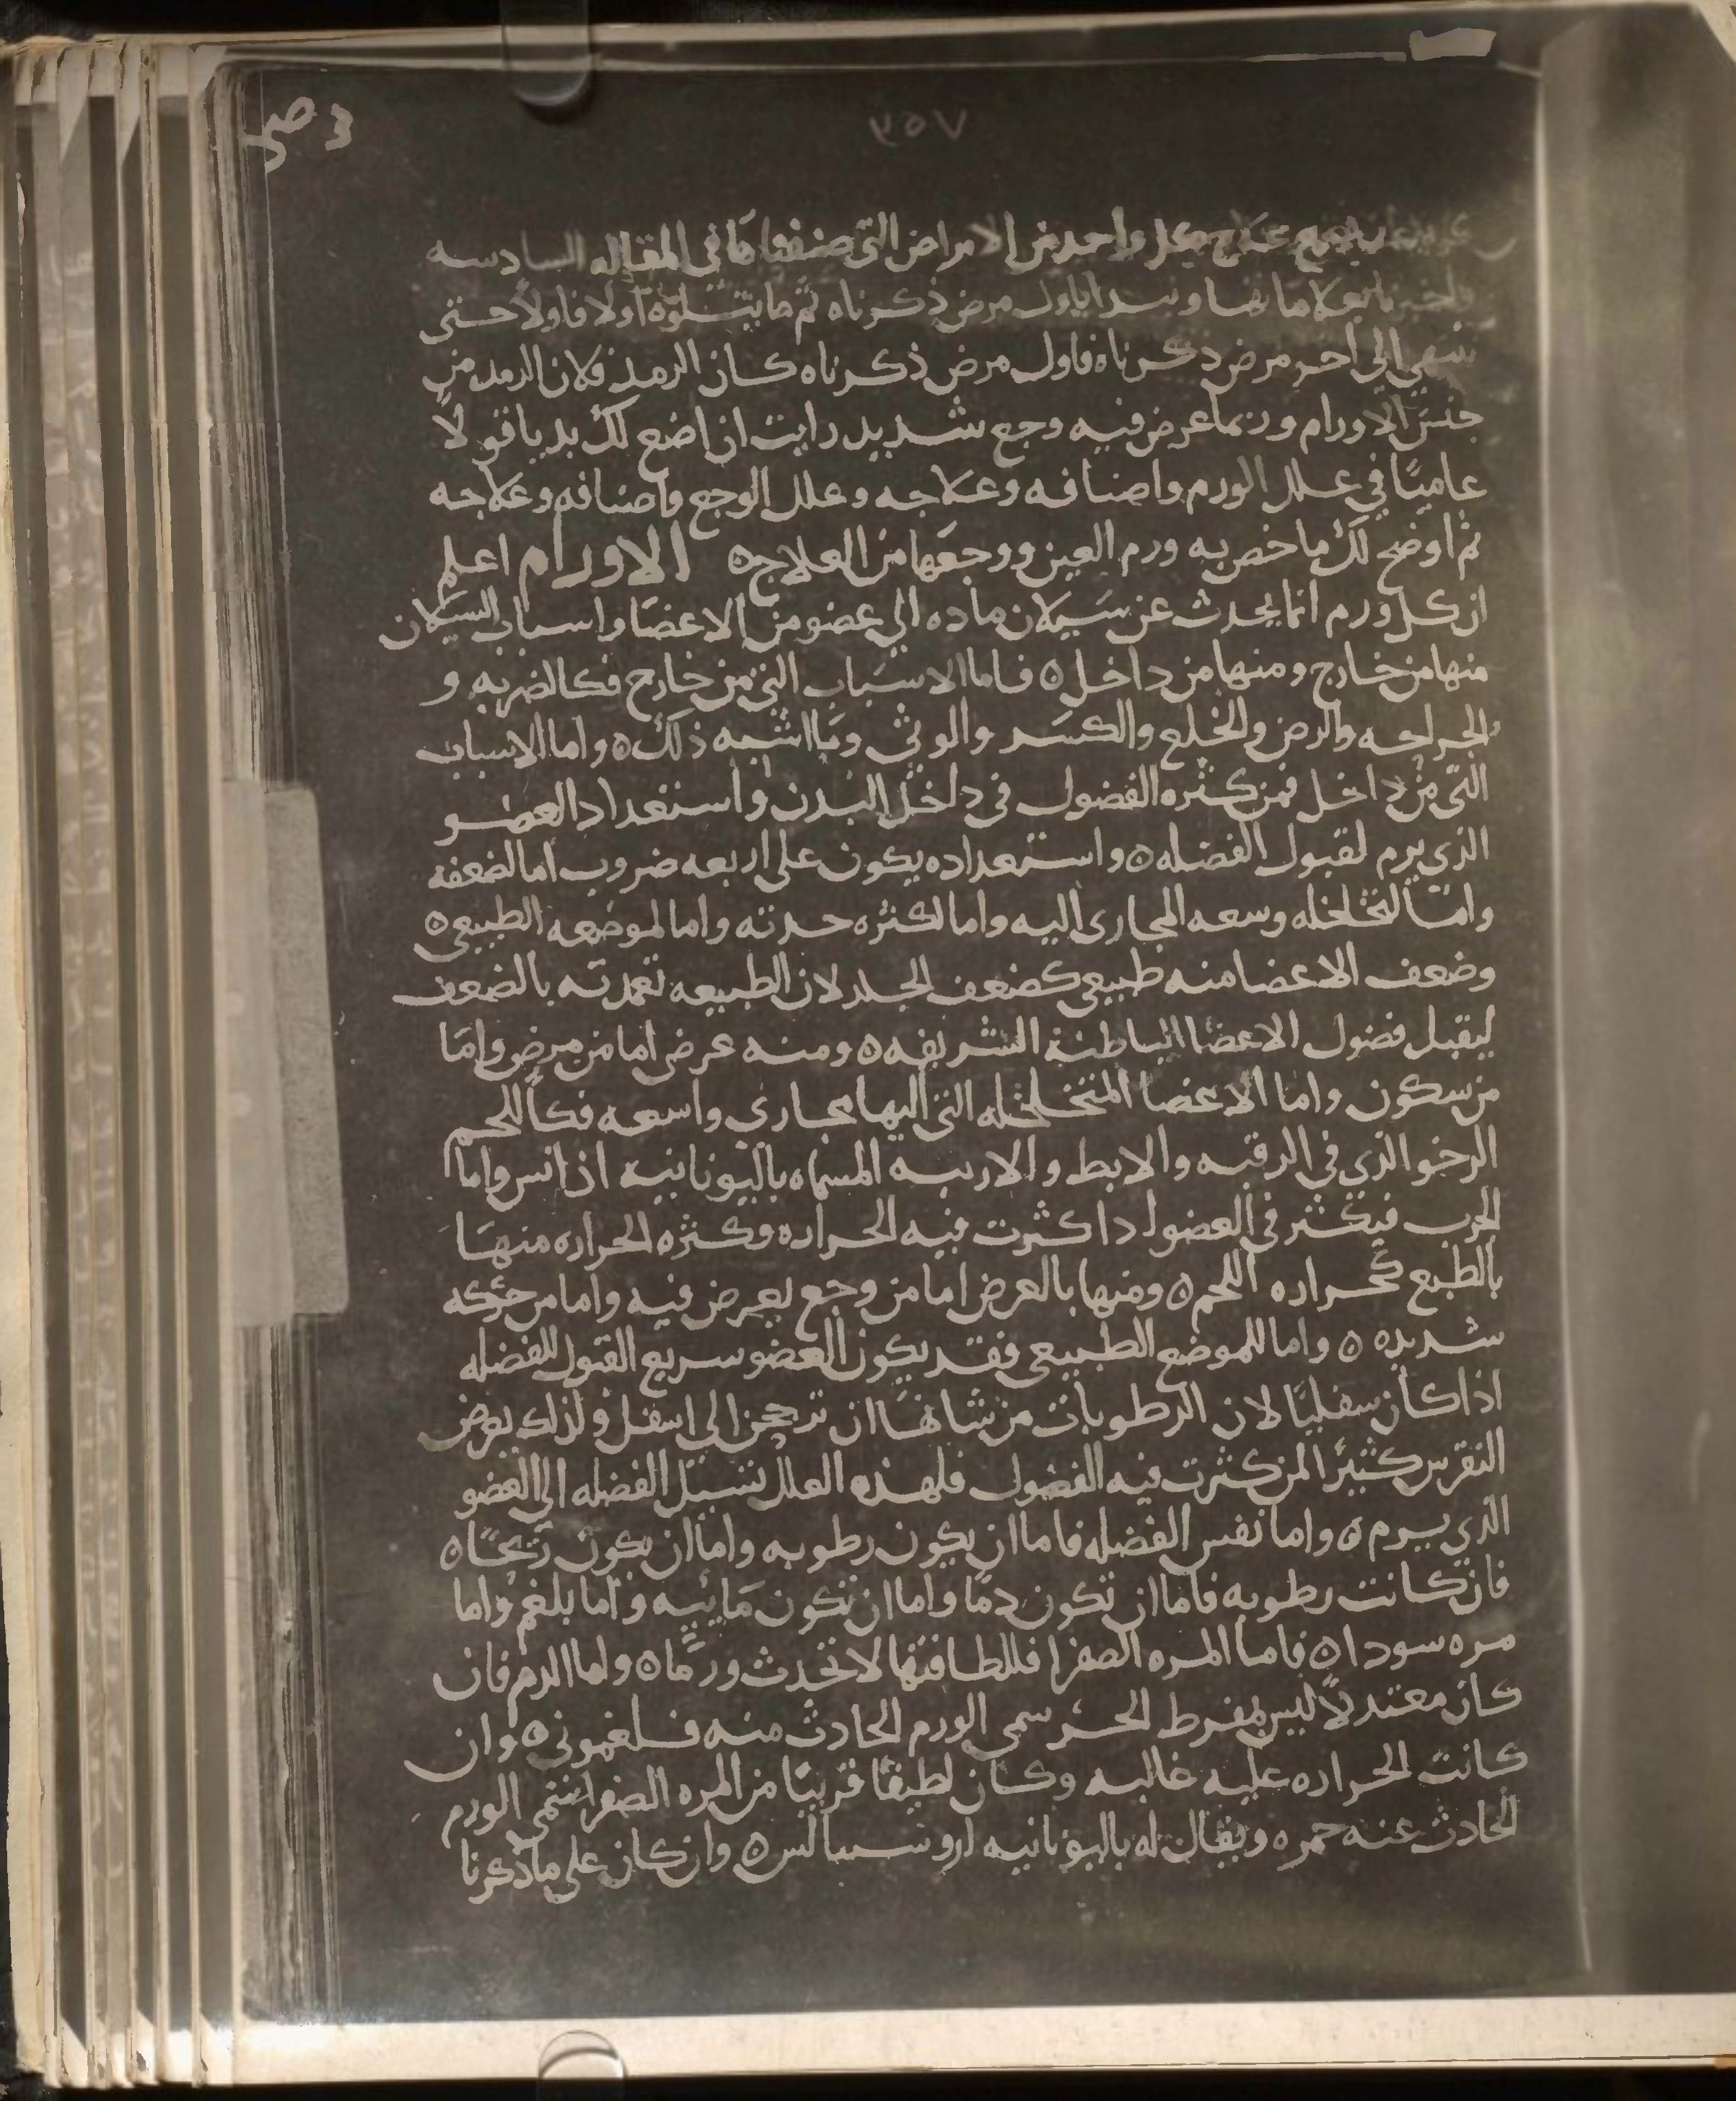 ٣٥٧
علاج كل واحد من الامراض التي صنفناها في المقاله السادسه
بعلاماتها ونبدا باول مرض ذكرناه ثم ما يتلوه اولا فاولا حتى
ننتهي الى اخر مرض ذكرناه فاول مرض ذكرناه كان الرمد فلان الرمد من
جنس الاورام وربما عرض فيه وجع شديد رايت ان اضع لك بديا قولا
عاميًا في علل الورم واصنافه وعلاجه وعلل الوجع واصنافه وعلاجه
ثم اوضح لك ما خص به ورم العين ووجعها من العلاج ٥ الاورام اعلم
ان كل ورم انما يحدث عن سيلان ماده الي عضو من الاعضا واسباب السيلان
منها من خارج ومنها من داخل ٥ فاما الاسباب التي من خارج فكالضربه و
الجراحه والرض والخلع والكسر والوثي وما اشبه ذلك ٥ واما الاسباب
التي من داخل فمن كثره الفضول في داخل البدن واستعداد العضو
الذي يرم لقبول الفضله ٥ واستعداده يكون على اربعه ضروب اما لضعفه
واما لتخلخله وسعه المجارى اليه واما لكثره حدته واما لموضعه الطبيعي ٥
وضعف الاعضا منه طبيعي كضعف الجلد لان الطبيعه تعمدته بالضعف
ليقبل فضول الاعضا الباطنة الشريفه ٥ ومنه عرض اما من مرض واما
من سكون واما الاعضا المتخلخله التي اليها مجارى واسعه فكاللحم
الرخو الذي في الرقبه والابط والاربيه المسماه باليونانيه اذانس واما
الجرب فيكثر في العضو اذا كثرت فيه الحراره وكثره الحراره منها
بالطبع كحراره اللحم ٥ ومنها بالعرض اما من وجع يعرض فيه واما من حركه
شديده ٥ واما للموضع الطبيعي فقد يكون العضو سريع القبول للفضله
اذا كان سفليًا لان الرطوبات من شانها ان ترجحن الى اسفل ولذلك يعرض
النقرس كثيرًا لمن كثرت فيه الفضول فلهذه العلل تسيل الفضله الي العضو
الذي يرم ٥ واما نفس الفضله فاما ان يكون رطوبه واما ان يكون ريحًا ٥
فان كانت رطوبه فاما ان تكون دمًا واما ان تكون مائيه واما بلغم واما
مره سودا ٥ فاما المره الصفرا فللطافتها لا تحدث ورمًا ٥ واما الدم فان
كان معتدلًا ليس بمفرط الحر سمى الورم الحادث منه فلغموني ٥ وان
كانت الحراره عليه غالبه وكان لطيفًا قريبًا من المره الصفرا سمى الورم
الحادث عنه حمره ويقال له باليونانيه اروسيبالس ٥ وان كان على ما ذكرنا